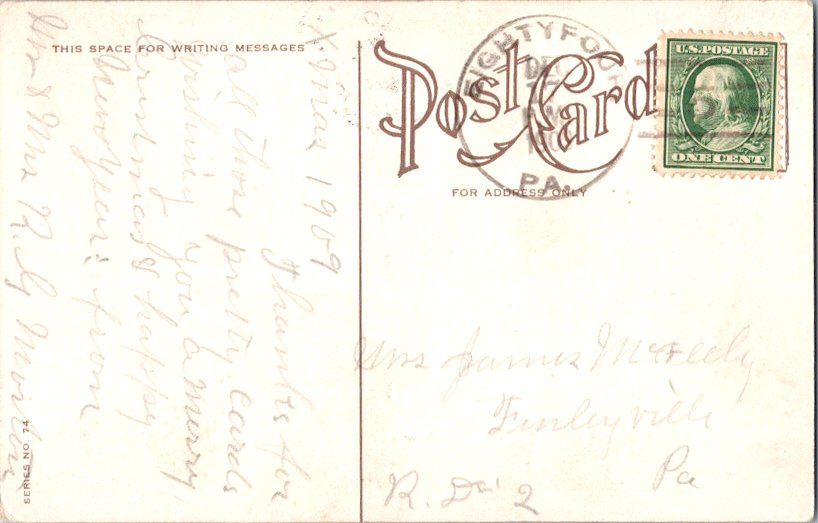 THIS SPACE FOR WRITING MESSAGES
Post Card
FOR ADDRESS ONLY
EIGHTYFOUR
DEC
PA.
U.S. POSTAGE
ONE CENT
Xmas 1909
Thanks for
all those pretty cards
wishing you a merry
Cristmas & happy
New Year: from
Mr & Mrs R. G Morton
Mrs James McFeely
Finleyville
Pa
R. D. 2
SERIES NO. 74